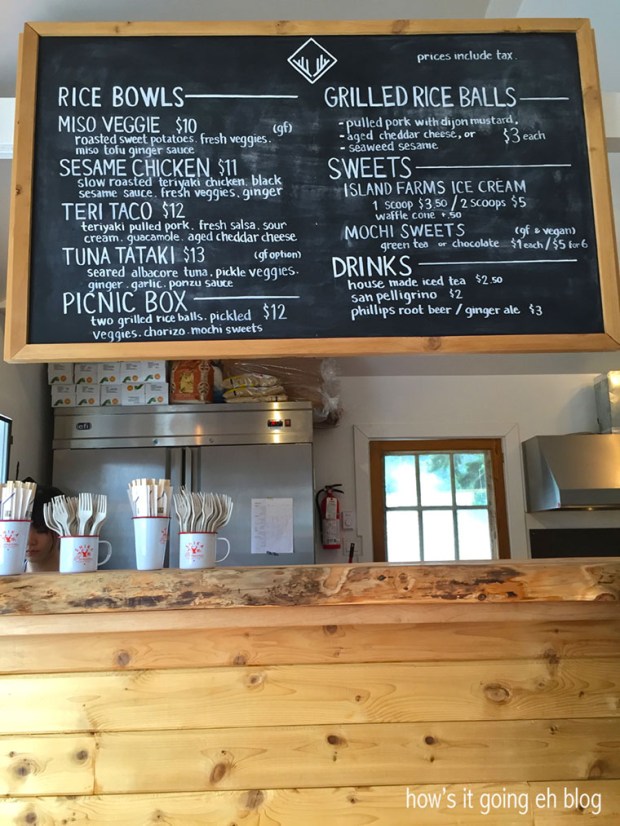 prices include tax.
RICE BOWLS
MISO VEGGIE $10 (gf)
roasted sweet potatoes. fresh veggies.
miso tofu ginger sauce
SESAME CHICKEN $11
slow roasted teriyaki chicken. black
sesame sauce. fresh veggies, ginger
TERI TACO $12
teriyaki pulled pork. fresh salsa. sour
cream. guacamole. aged cheddar cheese
TUNA TATAKI $13 (gf option)
seared albacore tuna. pickle veggies.
ginger. garlic. ponzu sauce
PICNIC BOX
two grilled rice balls. pickled $12
veggies. chorizo. mochi sweets
GRILLED RICE BALLS
- pulled pork with dijon mustard,
- aged cheddar cheese, or $3 each
- seaweed sesame
SWEETS
ISLAND FARMS ICE CREAM
1 scoop $3.50 / 2 scoops $5
waffle cone + .50
MOCHI SWEETS (gf & vegan)
green tea or chocolate $1 each / $5 for 6
DRINKS
house made iced tea $2.50
san pelligrino $2
phillips root beer / ginger ale $3
efi
how's it going eh blog